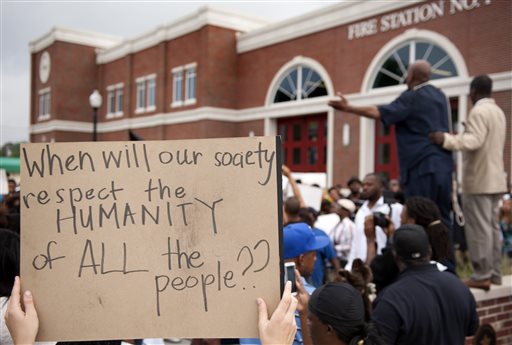 FIRE STATION NO. 1
When will our society
respect the
HUMANITY
of ALL the
people??